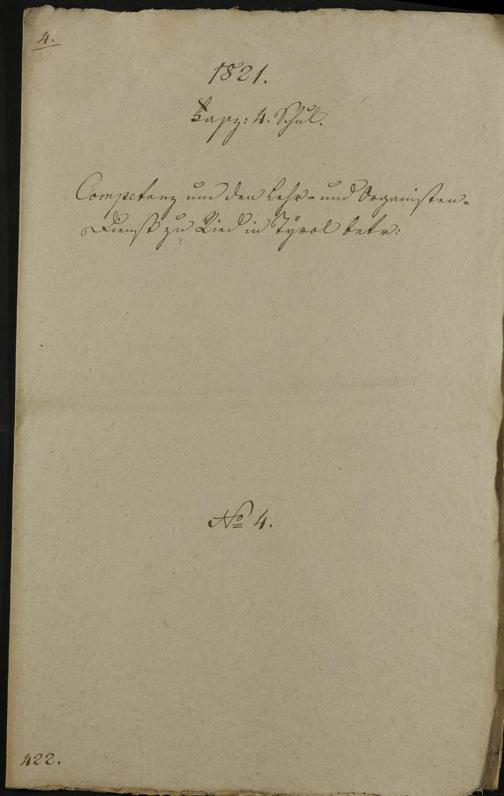 4.
1821.
Kapz: 4. Schul.
Competenz um den Lehr- und Organisten-
Dienst zu Ried in Tÿrol betr:
No 4.
422.